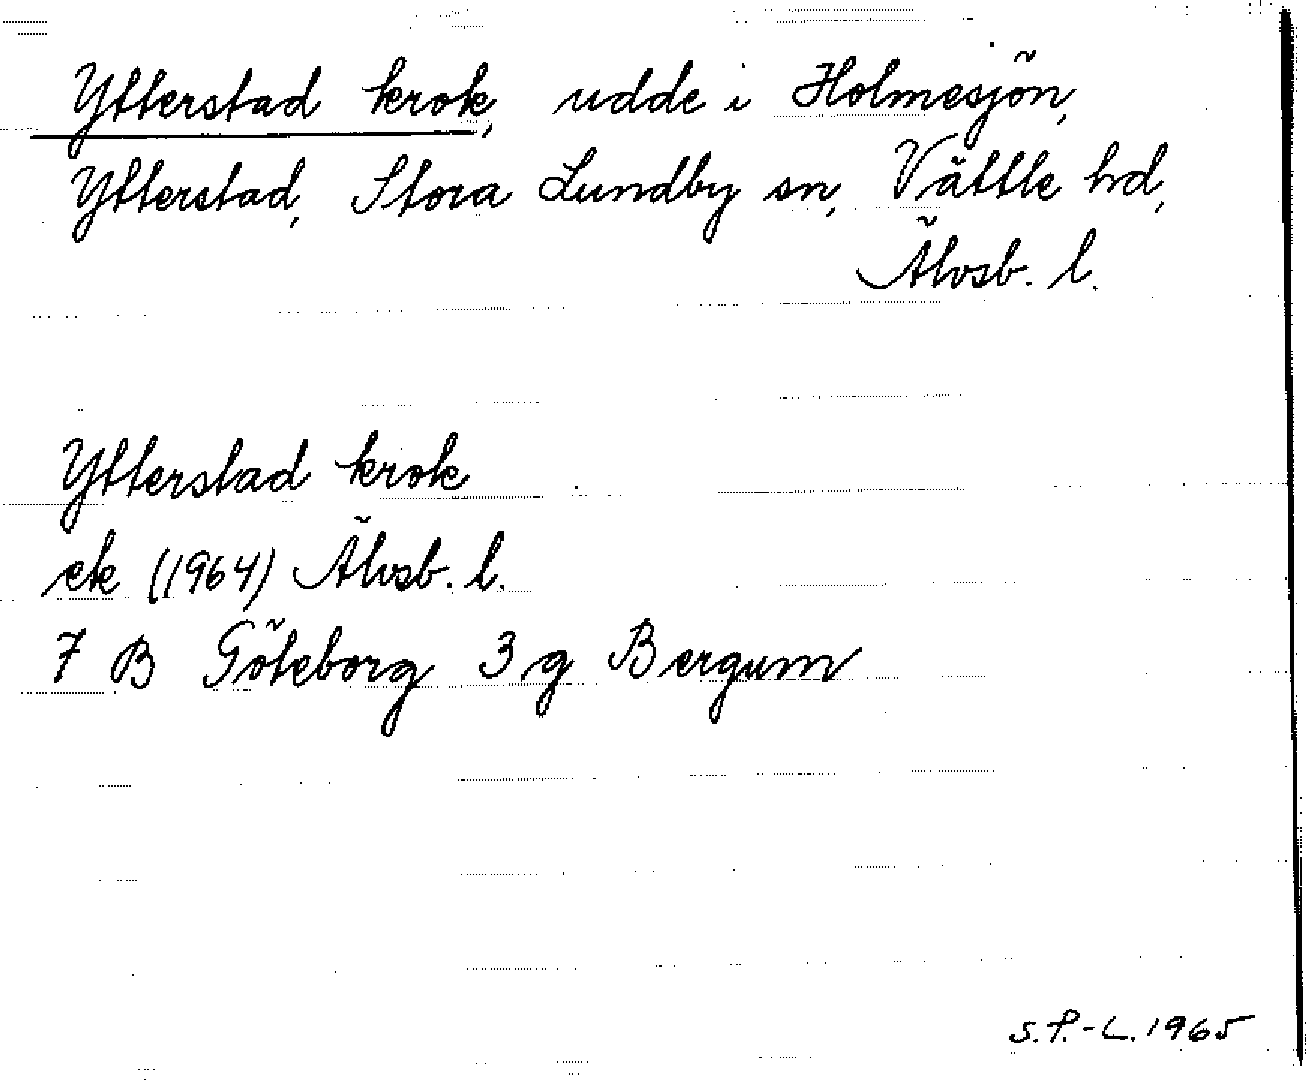 Ytterstad krok, udde i Holmesjön,
Ytterstad, Stora Lundby sn, Vättle hd,
Älvsb. l.
Ytterstad krok
ek (1964) Älvsb. l.
7 B Göteborg 3 g Bergum
S.P.-L. 1965